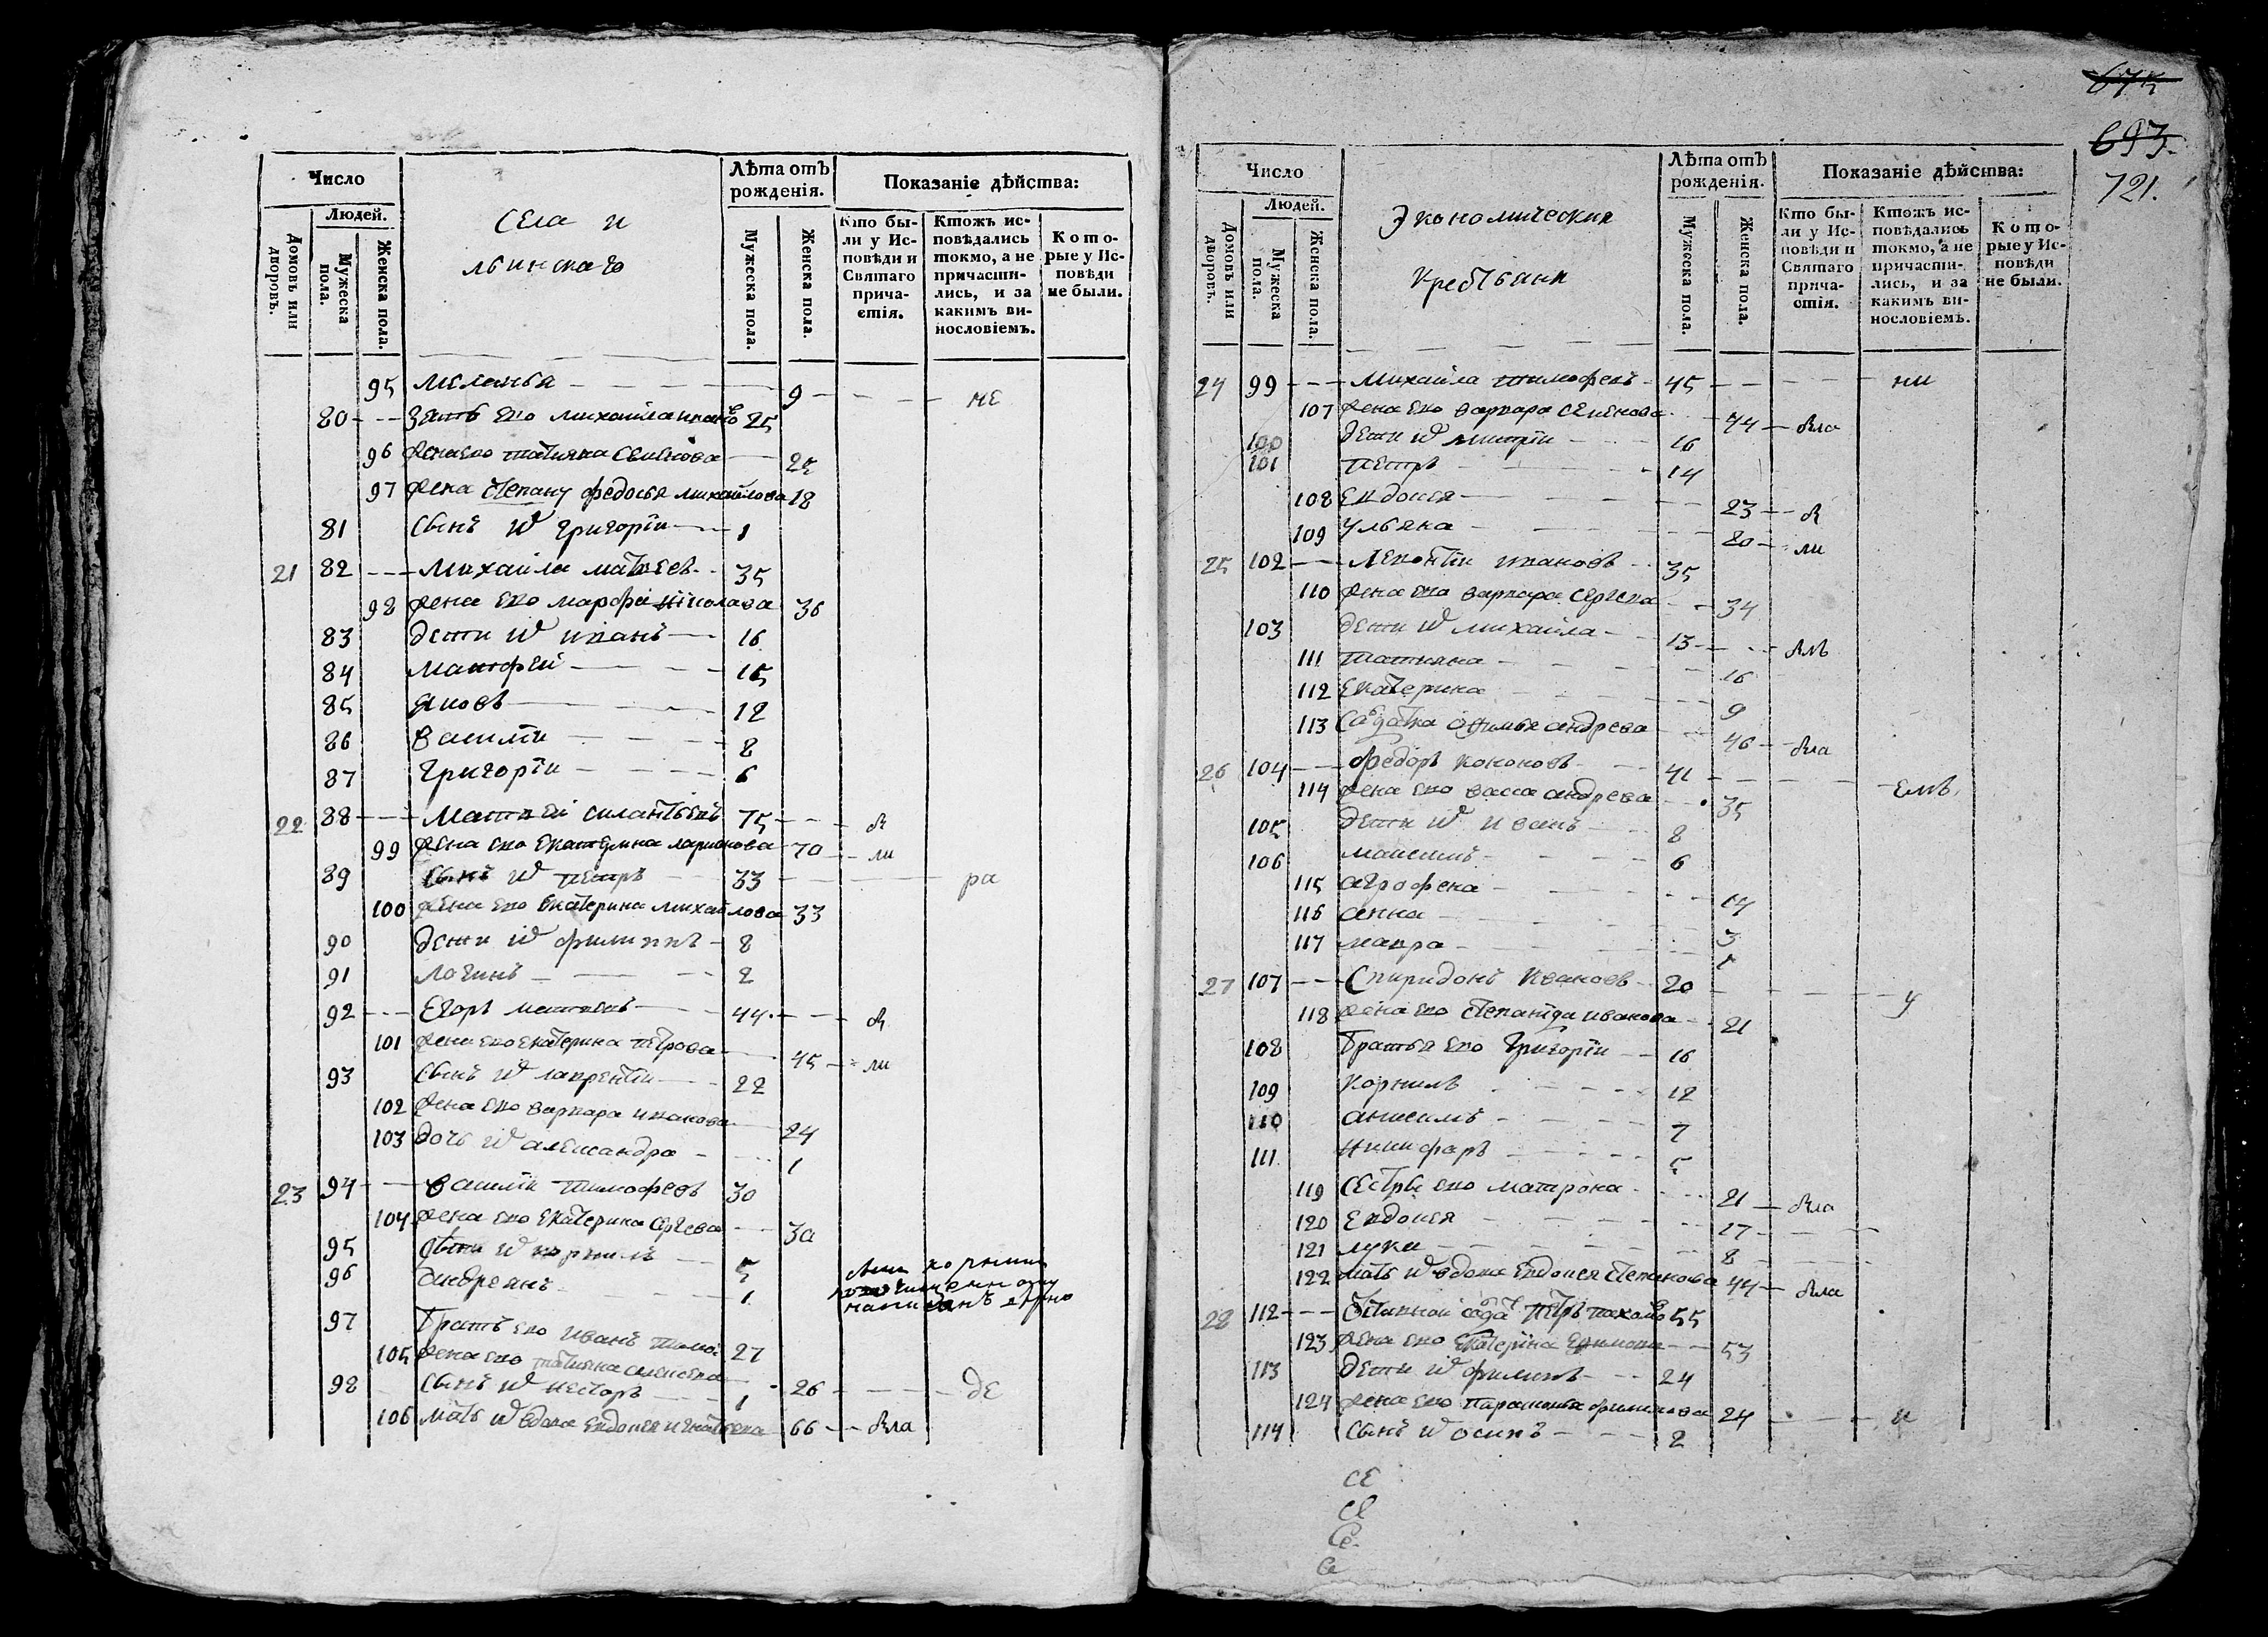 Число
Людей.
Домовъ или дворовъ.
Мужеска пола.
Женска пола.
Села и
льинскаго
Лѣта отъ рожденія.
Мужеска пола.
Женска пола.
Показаніе дѣйства:
Кто были у Исповѣди и Святаго причастія.
Ктожъ исповѣдались токмо, а не причастились, и за какимъ винословіемъ.
Которые у Исповѣди не были.
95 меланья 9 не
80 зять ево михаила ивано 25
96 жена ево татияна семенова 25
97 жена степану федосья михаилова 18
81 сынъ ѿ григоріи 1
21 82 Михаила матвеевъ 35
98 жена ево марфа николаева 36
83 дети ѿ иванъ 16
84 матфеи 15
85 яковъ 12
86 василіи 8
87 григоріи 6
22 88 Матвеи силантьевъ 75 бы
99 жена ево екатерина ларионова 70 ли
89 сынъ ѿ петръ 33 ра
100 жена ево екатерина михаилова 33
90 дети ѿ филиппъ 8
91 логинъ 2
92 Егоръ матвеевъ 44 бы
101 жена ево екатерина петрова 45 ли
93 сынъ ѿ лаврентіи 22
102 жена ево варвара иванова 24
103 дочь ѿ александра 1
23 94 василіи тимофеевъ 30
104 жена ево екатерина сергеева 30
95 дети ѿ корнилъ 5
96 андреянъ 1
97 братъ ево иванъ тимо 27
105 жена ево татияна
98 сынъ ѿ несторъ 1 26 де
106 мать ѿ вдова евдокея игнатева 66 была
675
693.
721.
Число
Людей.
Домовъ или дворовъ.
Мужеска пола.
Женска пола.
Экономическия
крестьяня
Лѣта отъ рожденія.
Мужеска пола.
Женска пола.
Показаніе дѣйства:
Кто были у Исповѣди и Святаго причастія.
Ктожъ исповѣдались токмо, а не причастились, и за какимъ винословіемъ.
Которые у Исповѣди не были.
24 99 Михаила тимофеевъ 45 ни
107 жена ево варвара семенова 44 была
100 дети ѿ митріи 16
101 петръ 14
108 евдокея 23 бы
109 ульяна 20 ли
25 102 Леонтіи ивановъ 35
110 жена ево варвара сергеева 34
103 дети ѿ михаила 13 былъ
111 татияна 16
112 екатерина 9
113 салдатка афимья андреева 46 была
26 104 федоръ кононовъ 41 емъ
114 жена ево васса андреева 35
105 дети ѿ иванъ 8
106 максимъ 6
115 агрофена 14
116 анна 3
117 мавра 1
27 107 Спиридонъ Ивановъ 20 у
118 жена ево степанида иванова 21
108 братья ево григоріи 16
109 корнилъ 12
110 анисимъ 7
111 никифоръ 5
119 сестры ево матрона 21 была
120 евдокея 17
121 лукия 8
122 мать ѿ вдова евдокея степанова 44 была
28 112 Отставной салдатъ петръ пахомо 55
123 жена ево екатерина ефимова 53
113 дети ѿ филипъ 24
124 жена ево парасковья филипова 24 и
114 сынъ ѿ осипъ 2
се
се
се
се